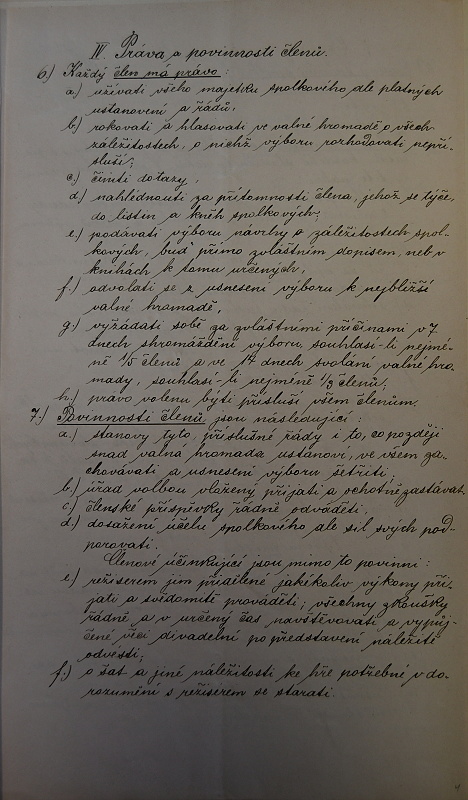 IV. Práva a povinnosti členů.
6.) Každý člen má právo:
a.) užívati všeho majetku spolkového dle platných
ustanovení a řádů,
b.) rokovati a hlasovati ve valné hromadě o všech
záležitostech, o nichž výboru rozhodovati nepří-
sluší;
c.) činiti dotazy,
d.) nahlédnouti za přítomnosti člena, jehož se týče,
do listin a kněh spolkových;
e.) podávati výboru návrhy o záležitostech spol-
kových, buď přímo zvláštním dopisem, neb v
knihách k tomu určených,
f.) odvolati se z usnesení výboru k nejbližší
valné hromadě,
g.) vyžádati sobě za zvláštními příčinami v 7
dnech shromáždění výboru, souhlasí-li nejmé-
ně 1/5 členů a ve 14 dnech svolání valné hro-
mady, souhlasí-li nejméně 1/3 členů;
h.) právo volenu býti přísluší všem členům.
7.) Povinnosti členů jsou následující:
a.) stanovy tyto, příslušné řády i to, co později
snad valná hromada ustanoví, ve všem za-
chovávati a usnesení výboru šetřiti;
b.) úřad volbou vložený přijati a ochotně zastávat
c.) členské příspěvky řádně odváděti,
d.) dosažení účelu spolkového dle sil svých pod-
porovati.
Členové účinkující jsou mimo to povinni:
e.) režiserem jim přidělené jakékoliv výkony při-
jati a svědomitě prováděti; všechny zkoušky
řádně a v určený čas navštěvovati a vypůj-
čené věci divadelní po představení náležitě
odvésti;
f.) o šat a jiné náležitosti ke hře potřebné v do-
rozumění s režiserem se starati.